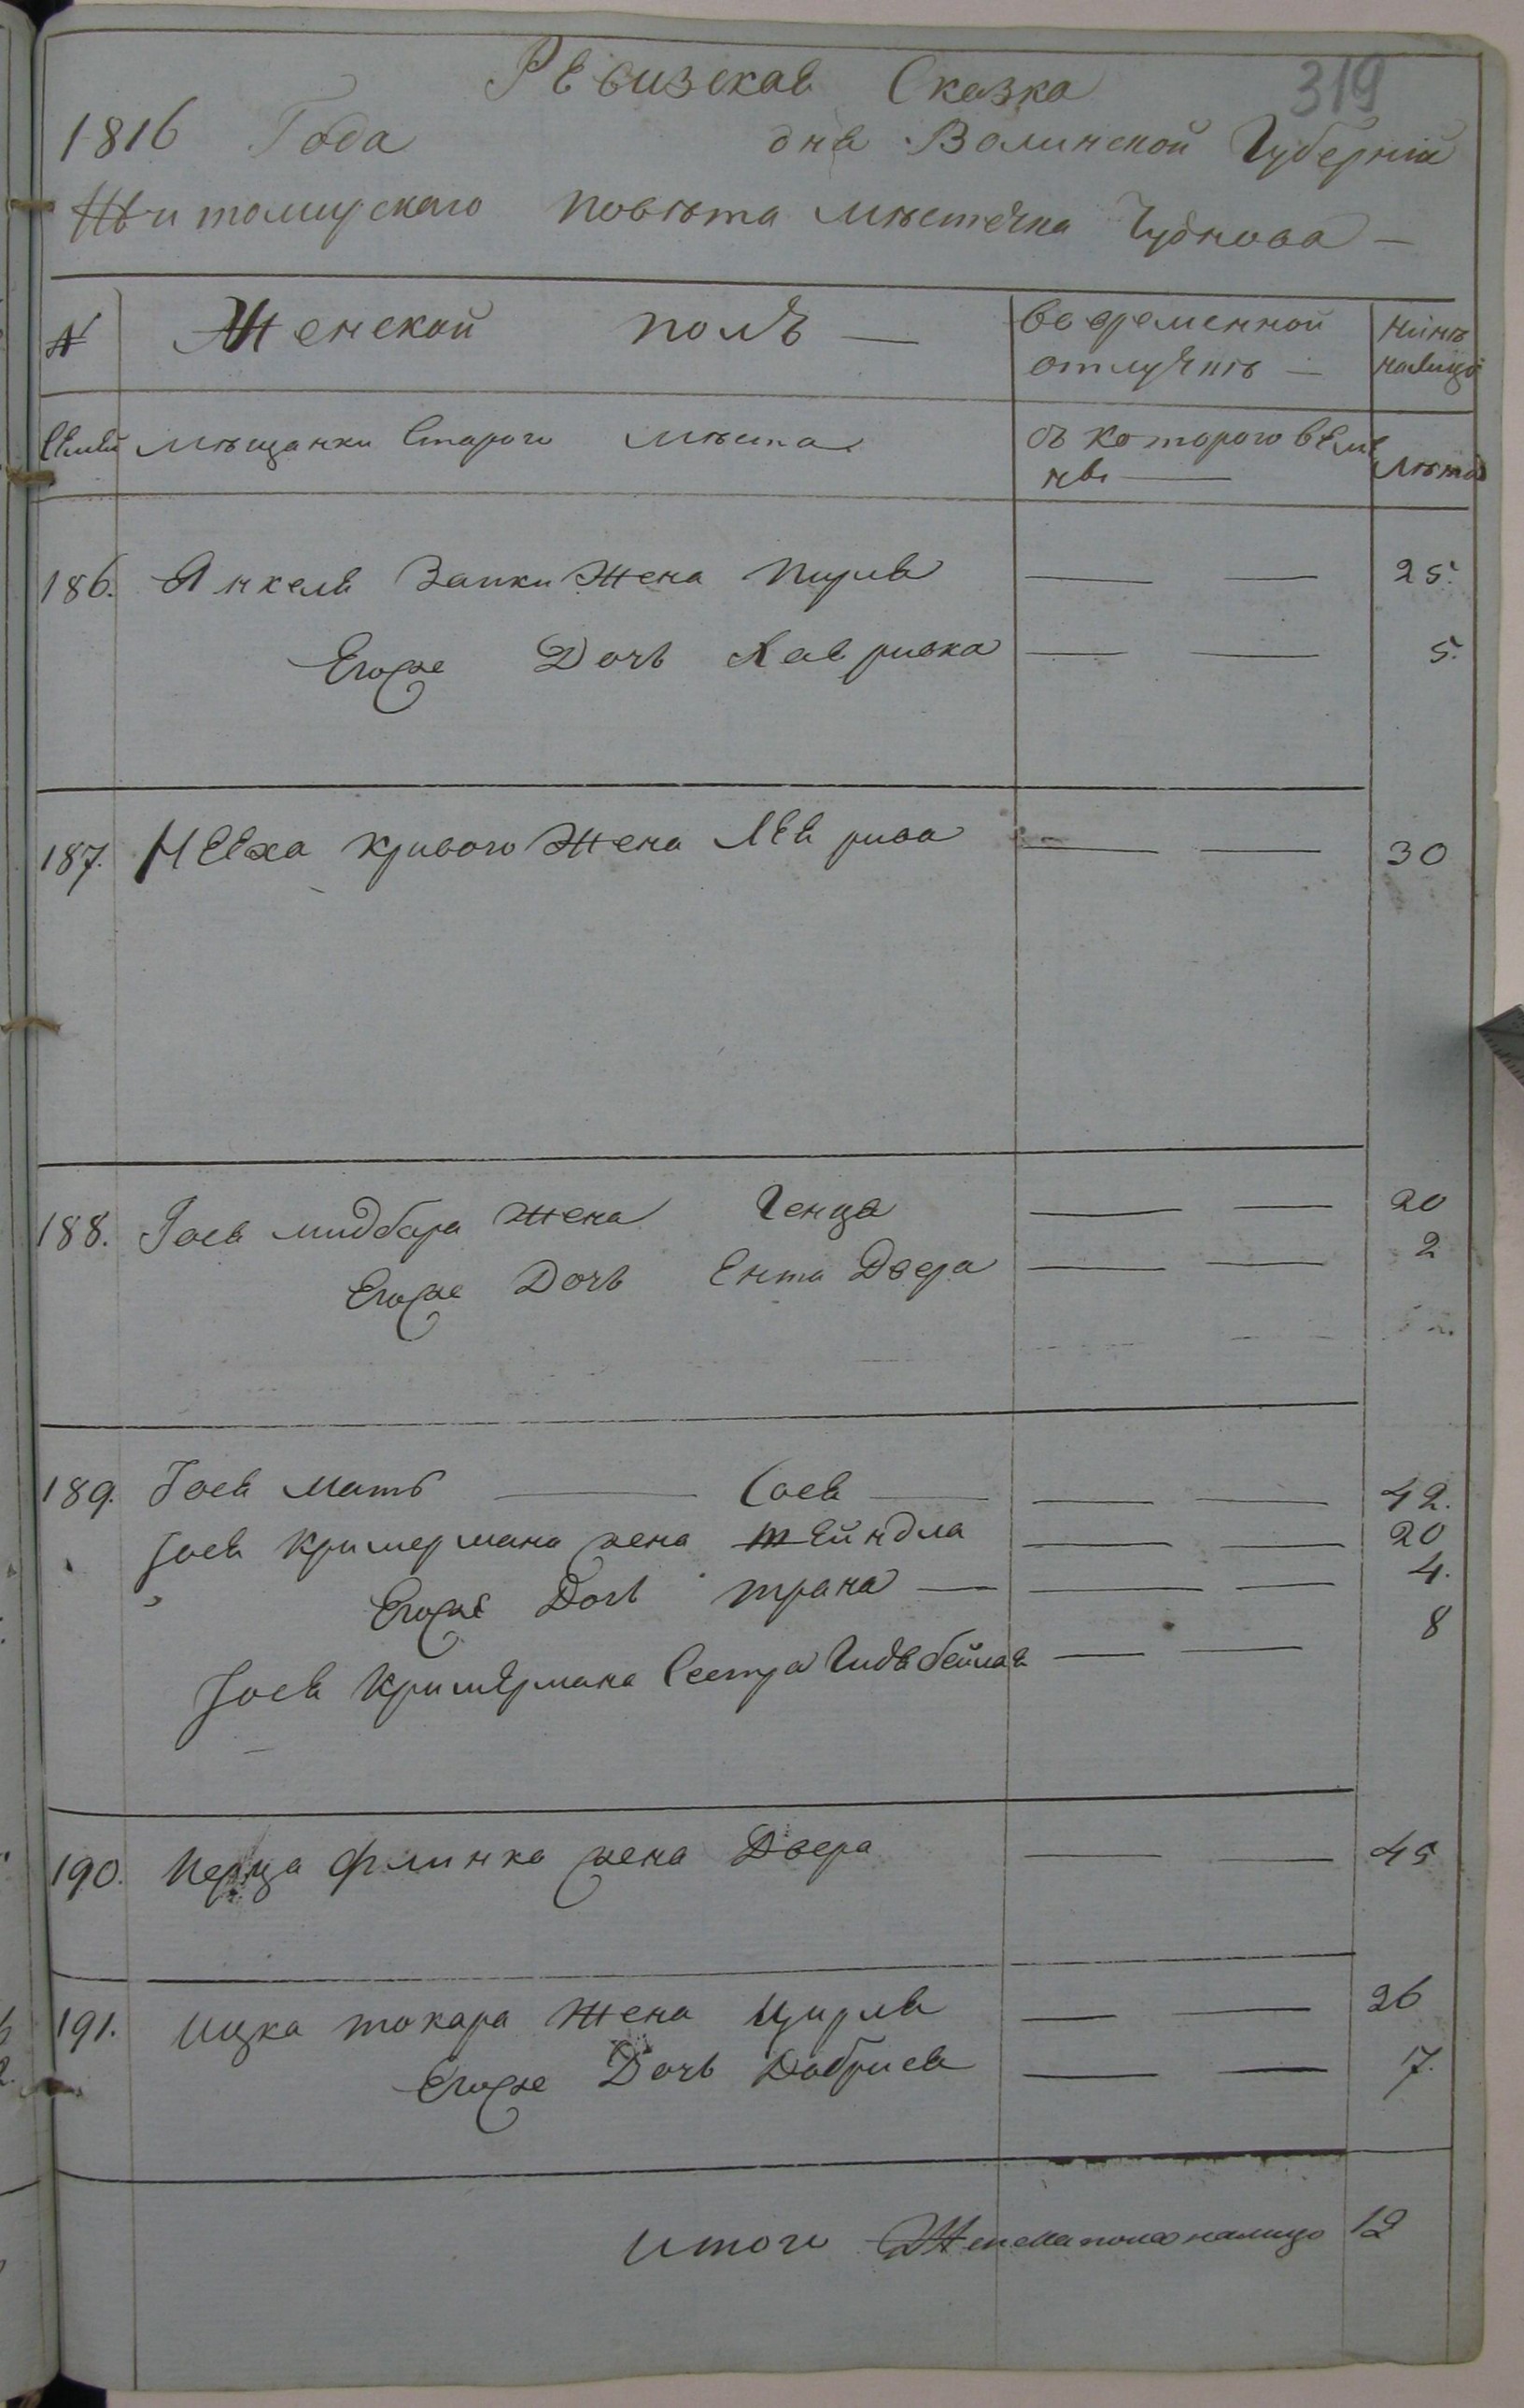 Ревизская Сказка 319
1816 Года дня Волинской Губернiи
Житомирскаго повѣта мѣстечка Чуднова —
№ Женской полъ — во временной отлучкѣ — нинѣ налицо
Семей мѣщанки Старого мѣста съ которого времени — лѣта
186. Янкеля Запки Жена Пирля — — 25.
Егоже Дочь Хая ривка — — 5.
187. Мееха кривого Жена Лея рива — — 30
188. Iося мидбара жена Генця — — 20
Егоже Дочь Ента Двера — — 2
189. Iося мать — Сося — — — 42.
Iося кримермана жена тейндла — — 20
Егоже Дочь трана — — — 4.
Iося Кримермана Сестра Гидя бейла — — 8
190. Перца флинка жена Двера — — 45
191. Ицка токара жена Цирля — — 26
Егоже Дочь Добрися — — 7.
Итого Женска пола налицо 12